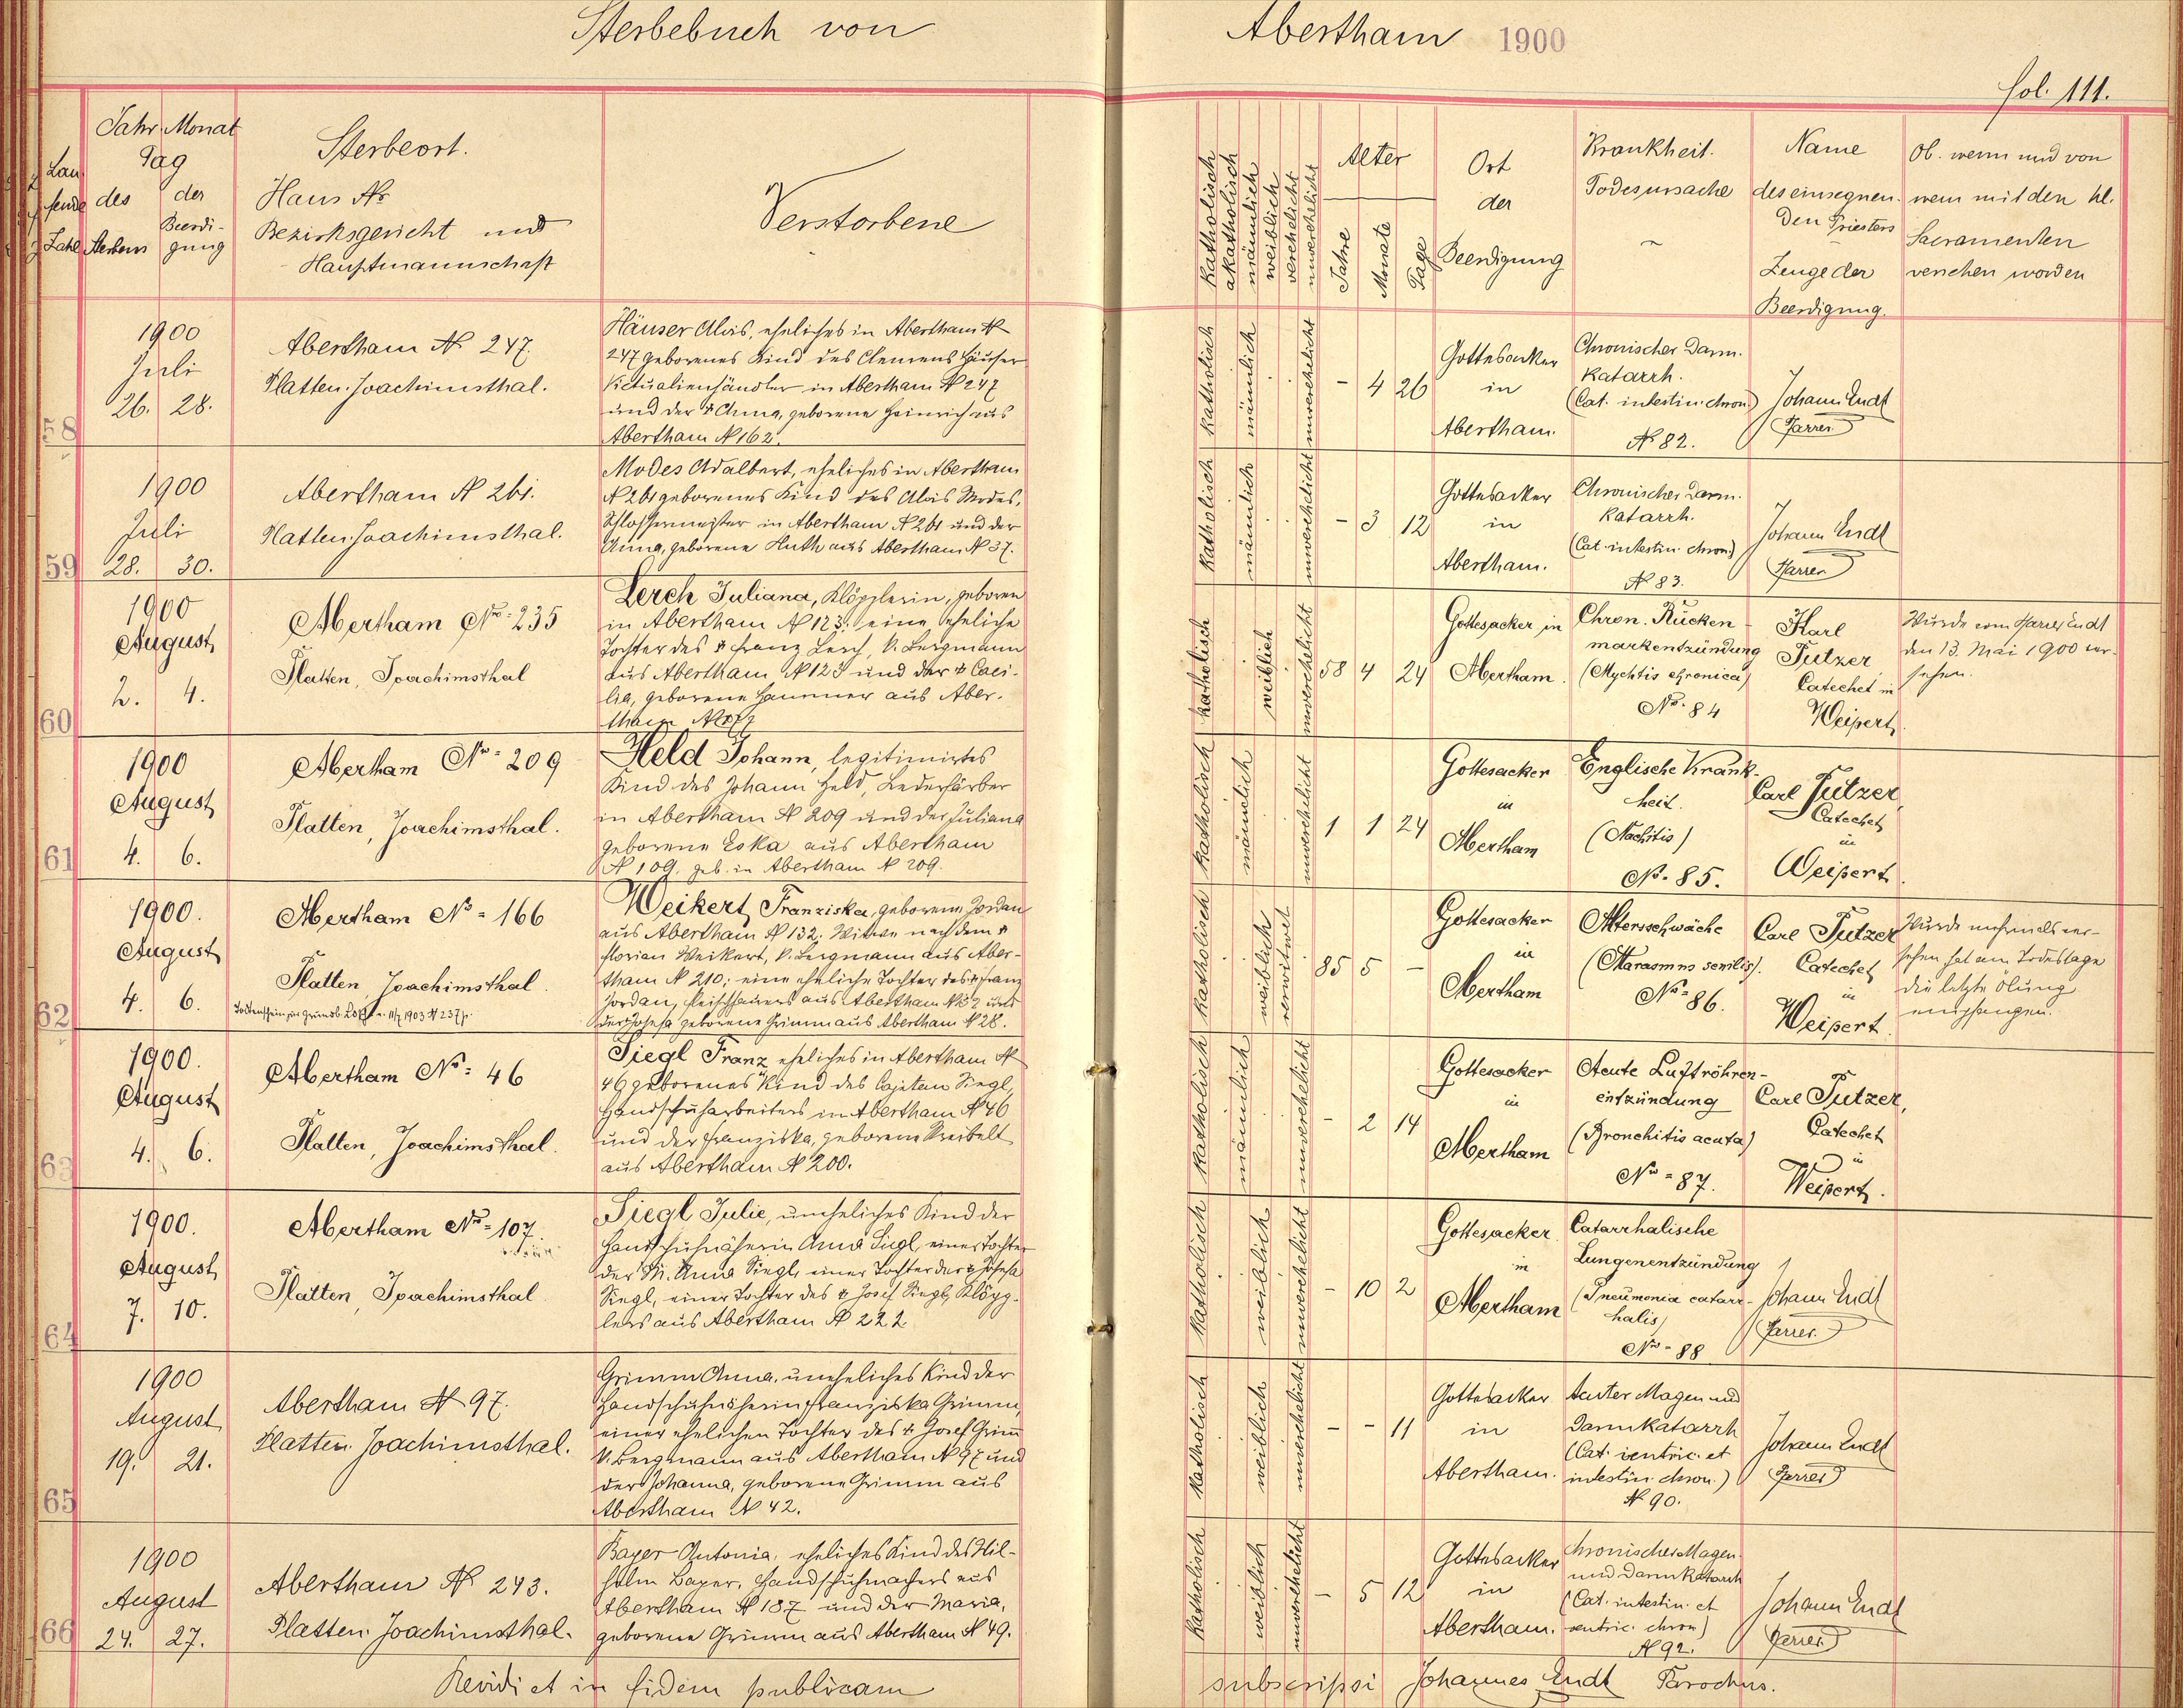 Sterbebuch von Abertham 1900
fol. 111.
Laufende Zahl
Jahr Monat
Tag
des Sterbens
der Beerdigung
Sterbeort.
Haus No
Bezirksgericht und
Hauptmannschaft
Verstorbene
katholisch
akatholisch
männlich
weiblich
verehelicht
unverehelicht
Alter
Jahre
Monate
Tage
Ort
der
Beerdigung
Krankheit.
Todesursache
Name
des einsegnen-
den Priesters
Zeuge der
Beerdigung.
Ob. wenn und von
wem mit den hl.
Sacramenten
versehen worden
58
1900
Juli
26. 28.
Abertham No 247.
Platten. Joachimsthal.
Häuser Alois, eheliches in Abertham No
247 geborenes Kind des Clemens Häuser
Victualienhändler in Abertham No 247
und der † Anna, geborene Heinrich aus
Abertham No 162.
katholisch
männlich
unverehelicht
- 4 26
Gottesacker
in
Abertham.
Chronischer Darm-
katarrh.
(Cat. intestin. chron.)
No 82.
Johann Endt
Pfarrer
59
1900
Juli
28. 30.
Abertham No 261.
Platten. Joachimsthal.
Modes Adalbert, eheliches in Abertham
No 261 geborenes Kind des Alois Modes,
Schlossermeister in Abertham No 261 und der
Anna, geborene Huth aus Abertham No 37.
katholisch
männlich
unverehelicht
- 3 12
Gottesacker
in
Abertham.
Chronischer Darm-
katarrh.
(Cat. intestin. chron.)
No 83.
Johann Endt
Pfarrer
60
1900
August
2. 4.
Abertham No = 235
Platten, Joachimsthal
Lerch Juliana, Klöpplerin, geboren
in Abertham No 123. eine eheliche
Tochter des † Franz Lerch, k. Bergmann
aus Abertham No 123 und der † Cäci-
lia, geborene Hammer aus Aber-
tham
katholisch
weiblich
unverehelicht
58 4 24
Gottesacker in
Abertham.
Chron. Rücken-
markentzündung
(Myelitis chronica)
No. 84
Karl
Putzer
Catechet in
Weipert.
Wurde vom Pfarrer Endt
den 13. Mai 1900 ver-
sehen.
61
1900
August
4. 6.
Abertham No = 209
Platten, Joachimsthal.
Held Johann, legitimirtes
Kind des Johann Held, Lederfärber
in Abertham No 209 und der Juliana
geborene Eska aus Abertham
No 109. geb. in Abertham No 209.
katholisch
männlich
unverehelicht
1 1 24
Gottesacker
in
Abertham
Englische Krank-
heit.
(Rachitis)
No. 85.
Carl Putzer
Catechet
in
Weipert.
62
1900.
August
4. 6.
Abertham No = 166
Platten, Joachimsthal.
Weikert Franziska, geborene Jordan
aus Abertham No 132. Witwe nach dem †
Florian Weikert, k. Bergmann aus Aber-
tham No 210; eine eheliche Tochter des † Franz
Jordan, Fleischhauers aus Abertham No 32 und
der † Josefa geborene Grimm aus Abertham No 28.
katholisch
weiblich
verwitwet
85 5 -
Gottesacker
in
Abertham
Altersschwäche
(Marasmus senilis).
No = 86.
Carl Putzer
Catechet
in
Weipert.
Wurde mehrmals ver-
sehen hat am Todestage
die letzte Ölung
empfangen.
63
1900.
August
4. 6.
Abertham No = 46
Platten, Joachimsthal.
Siegl Franz eheliches in Abertham No
46 geborenes Kind des Cajetan Siegl,
Handschuharbeiters in Abertham No 46
und der Franziska, geborene Kreibelt
aus Abertham No 200.
katholisch
männlich
unverehelicht
- 2 14
Gottesacker
in
Abertham
Acute Luftröhren-
entzündung
(Bronchitis acuta)
No = 87.
Carl Putzer,
Catechet
in
Weipert.
64
1900.
August
7. 10.
Abertham No = 107.
Platten, Joachimsthal
Siegl Julie, uneheliches Kind der
Handschuhnäherin Anna Siegl, einer Tochter
der M. Anna Siegl, einer Tochter der † Josefa
Siegl, einer Tochter des † Josef Siegl, Klöpp-
lers aus Abertham No 222
katholisch
weiblich
unverehelicht
- 10 2
Gottesacker
in
Abertham
Catarrhalische
Lungenentzündung
(Pneumonia catarr-
halis)
No = 88
Johann Endt
Pfarrer.
65
1900
August
19. 21.
Abertham No 97.
Platten. Joachimsthal.
Grimm Anna, uneheliches Kind der
Handschuhnäherin Franziska Grimm,
einer ehelichen Tochter des † Josef Grimm
k. Bergmann aus Abertham No 97 und
der Johanna, geborene Grimm aus
Abertham No 42.
katholisch
weiblich
unverehelicht
- - 11
Gottesacker
in
Abertham.
Acuter Magen und
Darmkatarrh
(Cat. ventric. et
intestin. chron.)
No 90.
Johann Endt
Pfarrer
66
1900
August
24. 27.
Abertham No 243.
Platten. Joachimsthal.
Bayer Antonia, eheliches Kind des Wil-
helm Bayer, Handschuhmachers aus
Abertham No 187 und der Maria,
geborene Grimm aus Abertham No 49.
katholisch
weiblich
unverehelicht
- 5 12
Gottesacker
in
Abertham.
Chronischer Magen-
und Darmkatarrh
(Cat. intestin. et
ventric. chron)
No 92.
Johann Endt
Pfarrer
Revidi et in fidem publicam subscripsi Johannes Endt Parochus.